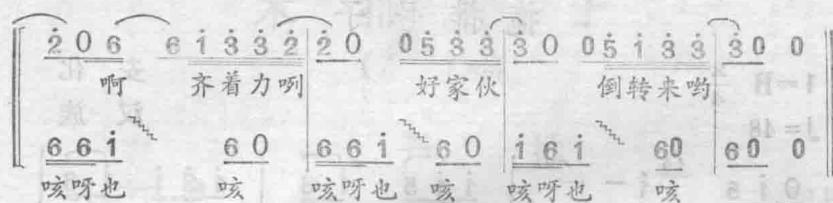 2̇ 0 6 6 1̇ 3̇ 3̇ 2̇ | 2̇ 0 0 5̇ 3̇ 3̇ | 3̇ 0 0 5̇ 1̇ 3̇ 3̇ | 3̇ 0 0
啊 齐着力咧 好家伙 倒转来哟
6 6 1̇ 6 0 | 6 6 1̇ 6 0 | 1̇ 6 1̇ 6 0 | 6 0 0
咳呀也 咳 咳呀也 咳 咳呀也 咳